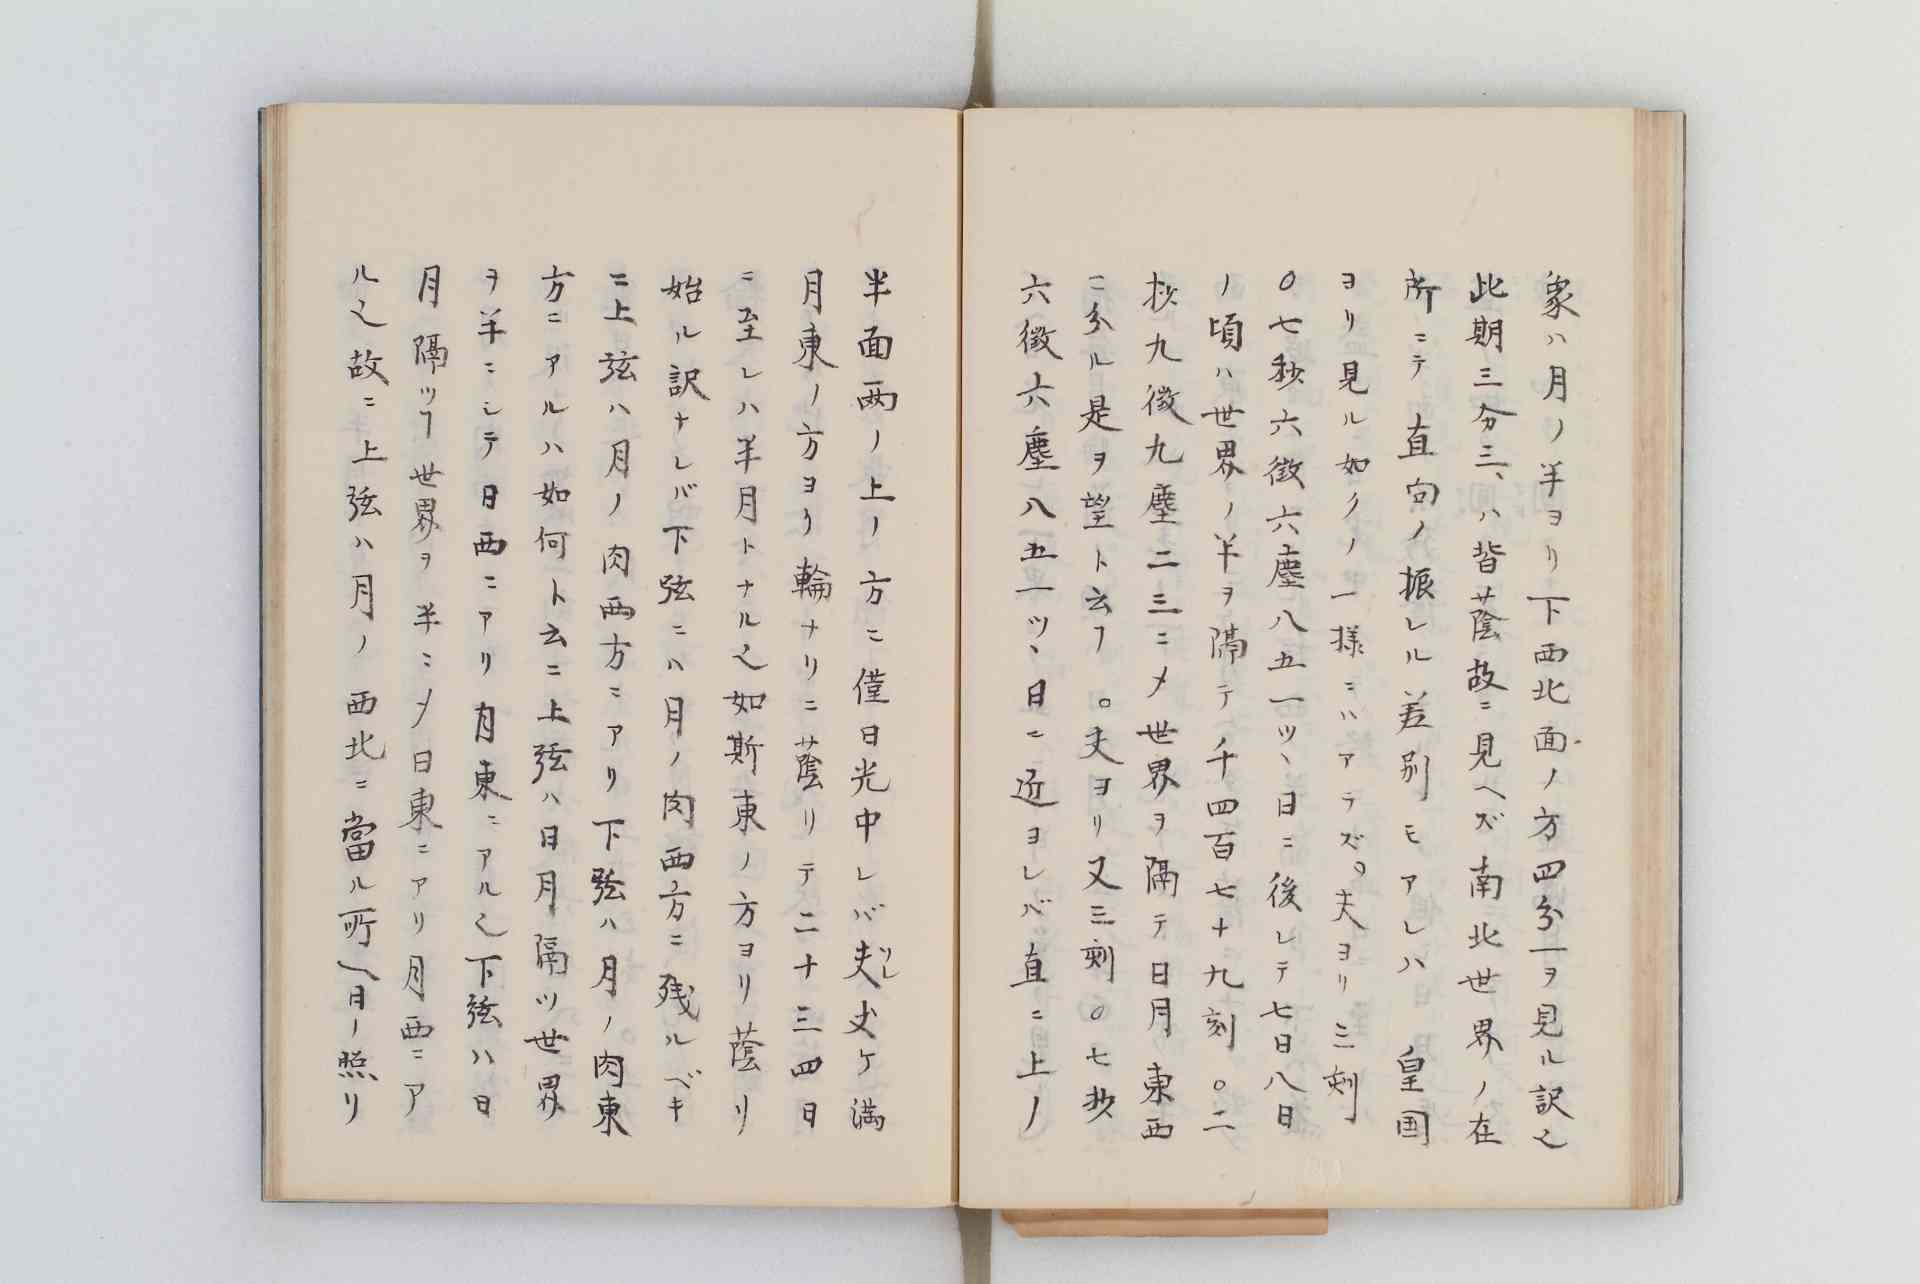 象ハ月ノ半ヨリ下西北面ノ方四分一ヲ見ル訳也
此期三分三ハ皆蔭故ニ見ヘズ南北世界ノ在
所ニテ直向ノ振レル差別モアレハ 皇国
ヨリ見ル如クノ一様ニハアラズ。夫ヨリ三刻
〇七秒六微六塵八五一ツヽ日ニ後レテ七日八日
ノ頃ハ世界ノ半ヲ隔テ千四百七十九刻〇二
秒九微九塵二三ニ〆世界ヲ隔テ日月東西
ニ分ル是ヲ望ト云フ。夫ヨリ又三刻〇七秒
六微六塵八五一ツヽ日ニ近ヨレバ直ニ上ノ
半面西ノ上ノ方ニ僅日光中レバ夫丈ケ満
月東ノ方ヨリ輪ナリニ蔭リテ二十三四日
ニ至レハ半月トナル也如斯東ノ方ヨリ蔭リ
始ル訳ナレバ下弦ニハ月ノ肉西方ニ残ルベキ
ニ上弦ハ月ノ肉西方ニアリ下弦ハ月ノ肉東
方ニアルハ如何ト云ニ上弦ハ日月隔ツ世界
ヲ半ニシテ日西ニアリ月東ニアル也下弦ハ日
月隔ツヿ世界ヲ半ニ〆日東ニアリ月西ニア
ル也故ニ上弦ハ月ノ西北ニ當ル所ヘ日ノ照リ